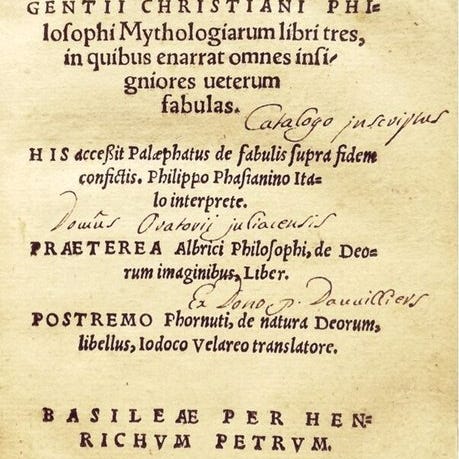 GENTII CHRISTIANI PHI=
losophi Mythologiarum libri tres,
in quibus enarrat omnes insi=
gniores ueterum
fabulas.
Catalogo inscriptus
HIS acceßit Palæphatus de fabulis supra fidem
confictis. Philippo Phasianino Ita=
lo interprete.
Domûs Oratorij juliacensis
PRAETEREA Albrici Philosophi, de Deo=
rum imaginibus, Liber.
Ex Dono p. Dauvilliers
POSTREMO Phornuti, de natura Deorum,
libellus, Iodoco Velareo translatore.
BASILEAE PER HEN=
RICHVM PETRVM.